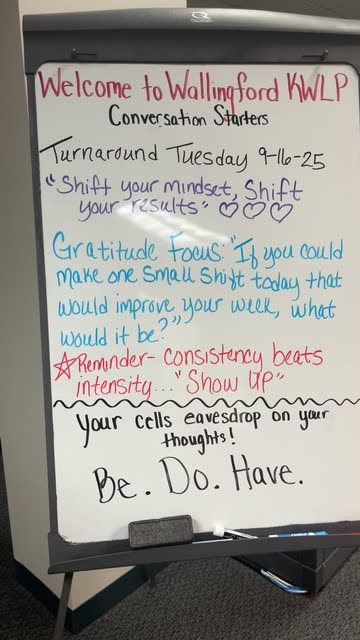 Welcome to Wallingford KWLP
Conversation Starters
Turnaround Tuesday 9-16-25
"Shift your mindset, Shift
your results" ♡♡♡
Gratitude Focus: "If you could
make one small shift today that
would improve your week, what
would it be?"
☆Reminder- consistency beats
intensity... "Show Up"
Your cells eavesdrop on your
thoughts!
Be. Do. Have.